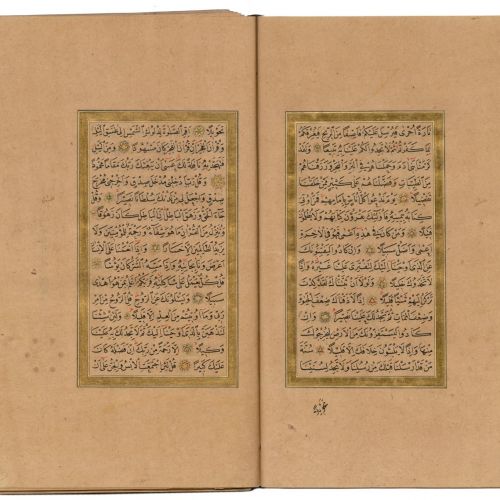 تَارَةً اُخْرٰى فَيُرْسِلَ عَلَيْكُمْ قَاصِفًا مِنَ الرِّيحِ فَيُغْرِقَكُمْ
بِمَا كَفَرْتُمْ ثُمَّ لَا تَجِدُوا لَكُمْ عَلَيْنَا بِهِ تَبِيعًا وَلَقَدْ
كَرَّمْنَا بَنِي اٰدَمَ وَحَمَلْنَاهُمْ فِي الْبَرِّ وَالْبَحْرِ وَرَزَقْنَاهُمْ
مِنَ الطَّيِّبَاتِ وَفَضَّلْنَاهُمْ عَلٰى كَثِيرٍ مِمَّنْ خَلَقْنَا
تَفْضِيلًا يَوْمَ نَدْعُوا كُلَّ اُنَاسٍ بِاِمَامِهِمْ فَمَنْ اُوتِيَ
كِتَابَهُ بِيَمِينِهِ فَاُولٰئِكَ يَقْرَؤُنَ كِتَابَهُمْ وَلَا يُظْلَمُونَ
فَتِيلًا وَمَنْ كَانَ فِي هٰذِهِ اَعْمٰى فَهُوَ فِي الْاٰخِرَةِ
اَعْمٰى وَاَضَلُّ سَبِيلًا وَاِنْ كَادُوا لَيَفْتِنُونَكَ
عَنِ الَّذِي اَوْحَيْنَا اِلَيْكَ لِتَفْتَرِيَ عَلَيْنَا غَيْرَهُ وَاِذًا
لَاتَّخَذُوكَ خَلِيلًا وَلَوْلَا اَنْ ثَبَّتْنَاكَ لَقَدْ كِدْتَ
تَرْكَنُ اِلَيْهِمْ شَيْئًا قَلِيلًا اِذًا لَاَذَقْنَاكَ ضِعْفَ الْحَيٰوةِ
وَضِعْفَ الْمَمَاتِ ثُمَّ لَا تَجِدُ لَكَ عَلَيْنَا نَصِيرًا وَاِنْ
كَادُوا لَيَسْتَفِزُّونَكَ مِنَ الْاَرْضِ لِيُخْرِجُوكَ
مِنْهَا وَاِذًا لَا يَلْبَثُونَ خِلَافَكَ اِلَّا قَلِيلًا سُنَّةَ
مَنْ قَدْ اَرْسَلْنَا قَبْلَكَ مِنْ رُسُلِنَا وَلَا تَجِدُ لِسُنَّتِنَا
تحويلا
تَحْوِيلًا اَقِمِ الصَّلٰوةَ لِدُلُوكِ الشَّمْسِ اِلٰى غَسَقِ الَّيْلِ
وَقُرْاٰنَ الْفَجْرِ اِنَّ قُرْاٰنَ الْفَجْرِ كَانَ مَشْهُودًا وَمِنَ الَّيْلِ
فَتَهَجَّدْ بِهِ نَافِلَةً لَكَ عَسٰى اَنْ يَبْعَثَكَ رَبُّكَ مَقَامًا مَحْمُودًا
وَقُلْ رَبِّ اَدْخِلْنِي مُدْخَلَ صِدْقٍ وَاَخْرِجْنِي مُخْرَجَ
صِدْقٍ وَاجْعَلْ لِي مِنْ لَدُنْكَ سُلْطَانًا نَصِيرًا وَقُلْ
جَاءَ الْحَقُّ وَزَهَقَ الْبَاطِلُ اِنَّ الْبَاطِلَ كَانَ زَهُوقًا
وَنُنَزِّلُ مِنَ الْقُرْاٰنِ مَا هُوَ شِفَاءٌ وَرَحْمَةٌ لِلْمُؤْمِنِينَ وَلَا
يَزِيدُ الظَّالِمِينَ اِلَّا خَسَارًا وَاِذَا اَنْعَمْنَا عَلَى الْاِنْسَانِ
اَعْرَضَ وَنَاٰ بِجَانِبِهِ وَاِذَا مَسَّهُ الشَّرُّ كَانَ يَؤُسًا قُلْ
كُلٌّ يَعْمَلُ عَلٰى شَاكِلَتِهِ فَرَبُّكُمْ اَعْلَمُ بِمَنْ هُوَ اَهْدٰى
سَبِيلًا وَيَسْئَلُونَكَ عَنِ الرُّوحِ قُلِ الرُّوحُ مِنْ اَمْرِ
رَبِّي وَمَا اُوتِيتُمْ مِنَ الْعِلْمِ اِلَّا قَلِيلًا وَلَئِنْ شِئْنَا
لَنَذْهَبَنَّ بِالَّذِي اَوْحَيْنَا اِلَيْكَ ثُمَّ لَا تَجِدُ لَكَ بِهِ عَلَيْنَا
وَكِيلًا اِلَّا رَحْمَةً مِنْ رَبِّكَ اِنَّ فَضْلَهُ كَانَ
عَلَيْكَ كَبِيرًا قُلْ لَئِنِ اجْتَمَعَتِ الْاِنْسُ وَالْجِنُّ عَلٰى اَنْ